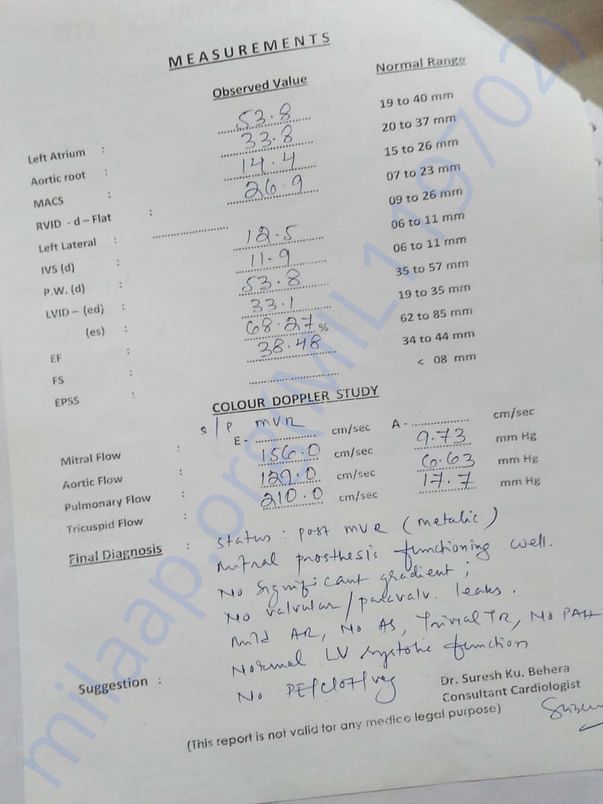 MEASUREMENTS
Observed Value Normal Range
Left Atrium : 53.8 19 to 40 mm
Aortic root : 33.8 20 to 37 mm
MACS : 14.4 15 to 26 mm
RVID - d – Flat : 26.9 07 to 23 mm
Left Lateral : 09 to 26 mm
IVS (d) : 12.5 06 to 11 mm
P.W. (d) : 11.9 06 to 11 mm
LVID – (ed) : 53.8 35 to 57 mm
(es) : 33.1 19 to 35 mm
EF : 68.27 % 62 to 85 mm
FS : 38.48 34 to 44 mm
EPSS : < 08 mm
COLOUR DOPPLER STUDY
Mitral Flow : s/p MVR E - cm/sec A - cm/sec
Aortic Flow : 156.0 cm/sec 9.73 mm Hg
Pulmonary Flow : 129.0 cm/sec 6.63 mm Hg
Tricuspid Flow : 210.0 cm/sec 17.7 mm Hg
Final Diagnosis : Status : post MVR (metalic)
Mitral prosthesis functioning well.
No significant gradient ;
No valvular / paravalv. leaks.
Mild AR, No AS, Trivial TR, No PAH
Normal LV systolic function
Suggestion : No PE/clot/veg
Dr. Suresh Ku. Behera
Consultant Cardiologist
(This report is not valid for any medico legal purpose)
milaap.org(MIL119702)